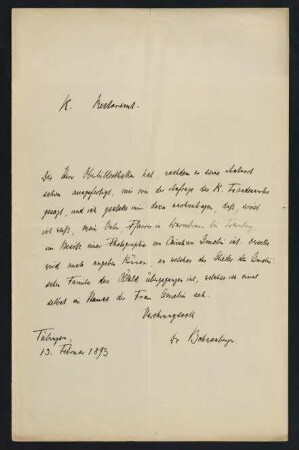 K. Rectoramt.
Der Herr Oberbibliothekar hat, nachdem er seine Antwort
schon ausgefertigt, mir von der Anfrage des K.
gesagt, und ich gestatte mir davon nachzutragen, daß, soviel
ich weiß, mein Vater, Pfarrer in bei
im Besitz einer Photographie von Christian Gmelin ist. Derselbe
wird auch angeben können, an welches der Glieder der
Familie das Bild übergegangen ist, welches ich einst
selbst im Hause der Frau Gmelin sah.
Hochachtungsvoll
Tübingen,
13. Februar 1893
Dr